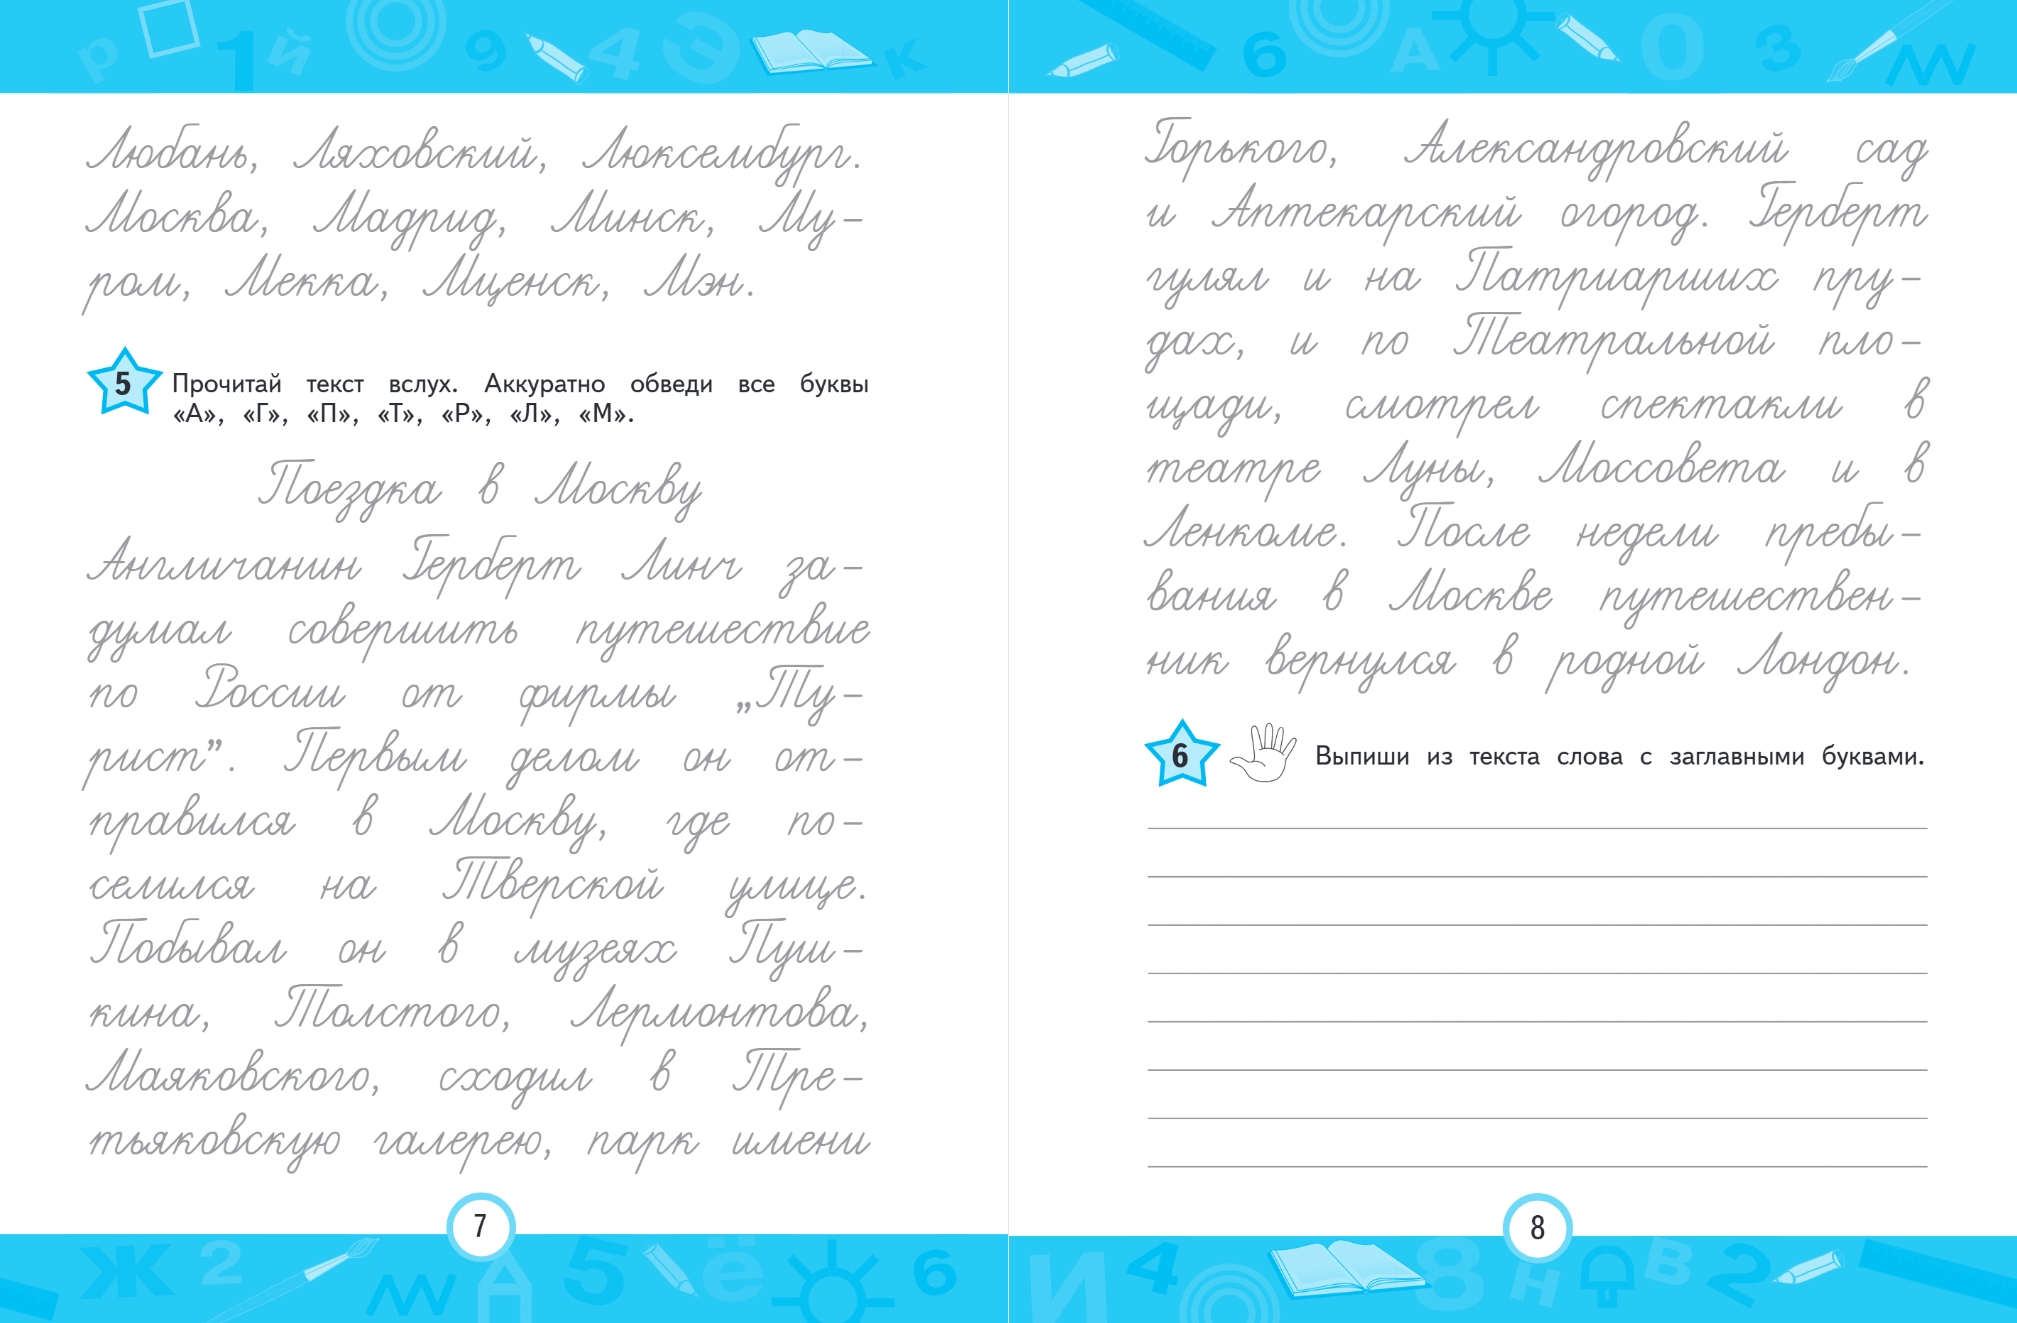 Любань, Ляховский, Люксембург.
Москва, Мадрид, Минск, Му-
ром, Мекка, Мценск, Мэн.
5 Прочитай текст вслух. Аккуратно обведи все буквы
«А», «Г», «П», «Т», «Р», «Л», «М».
Поездка в Москву
Англичанин Герберт Линч за-
думал совершить путешествие
по России от фирмы „Ту-
рист”. Первым делом он от-
правился в Москву, где по-
селился на Тверской улице.
Побывал он в музеях Пуш-
кина, Толстого, Лермонтова,
Маяковского, сходил в Тре-
тьяковскую галерею, парк имени
7
Горького, Александровский сад
и Аптекарский огород. Герберт
гулял и на Патриарших пру-
дах, и по Театральной пло-
щади, смотрел спектакли в
театре Луны, Моссовета и в
Ленкоме. После недели пребы-
вания в Москве путешествен-
ник вернулся в родной Лондон.
6 Выпиши из текста слова с заглавными буквами.
8